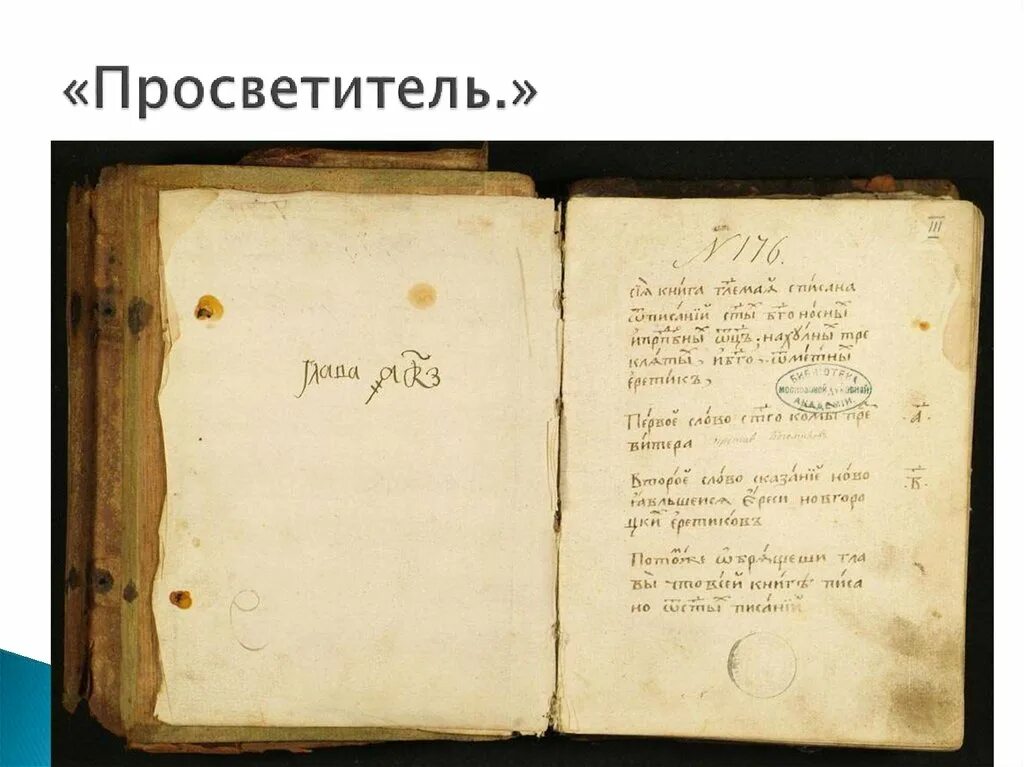 «Просветитель.»
III
N 176.
сїѧ книга глемаѧ списана
ѿписанїй стыⷯ бг҃оносныⷯ
ипрпⷣбныⷯ ѿц҃ъ, нахулныⷯ тре
клѧтыⷯ, ибг҃о, ѿметныⷯ
еретикъ,
БИБЛІОТЕКА
МОСКОВСКОЙ ДУХОВНОЙ
АКАДЕМІИ.
Первое слово ст҃го козмы пре
.а҃.
витера
Второе слово сказанїе ново
.в҃.
ꙗвльшеисѧ ереси новгоро
цкиⷯ еретиковъ
Потомже ѡбрѧщеши гла
вы чтовсей книгѣ писа
но ѿстыⷯ писанїй